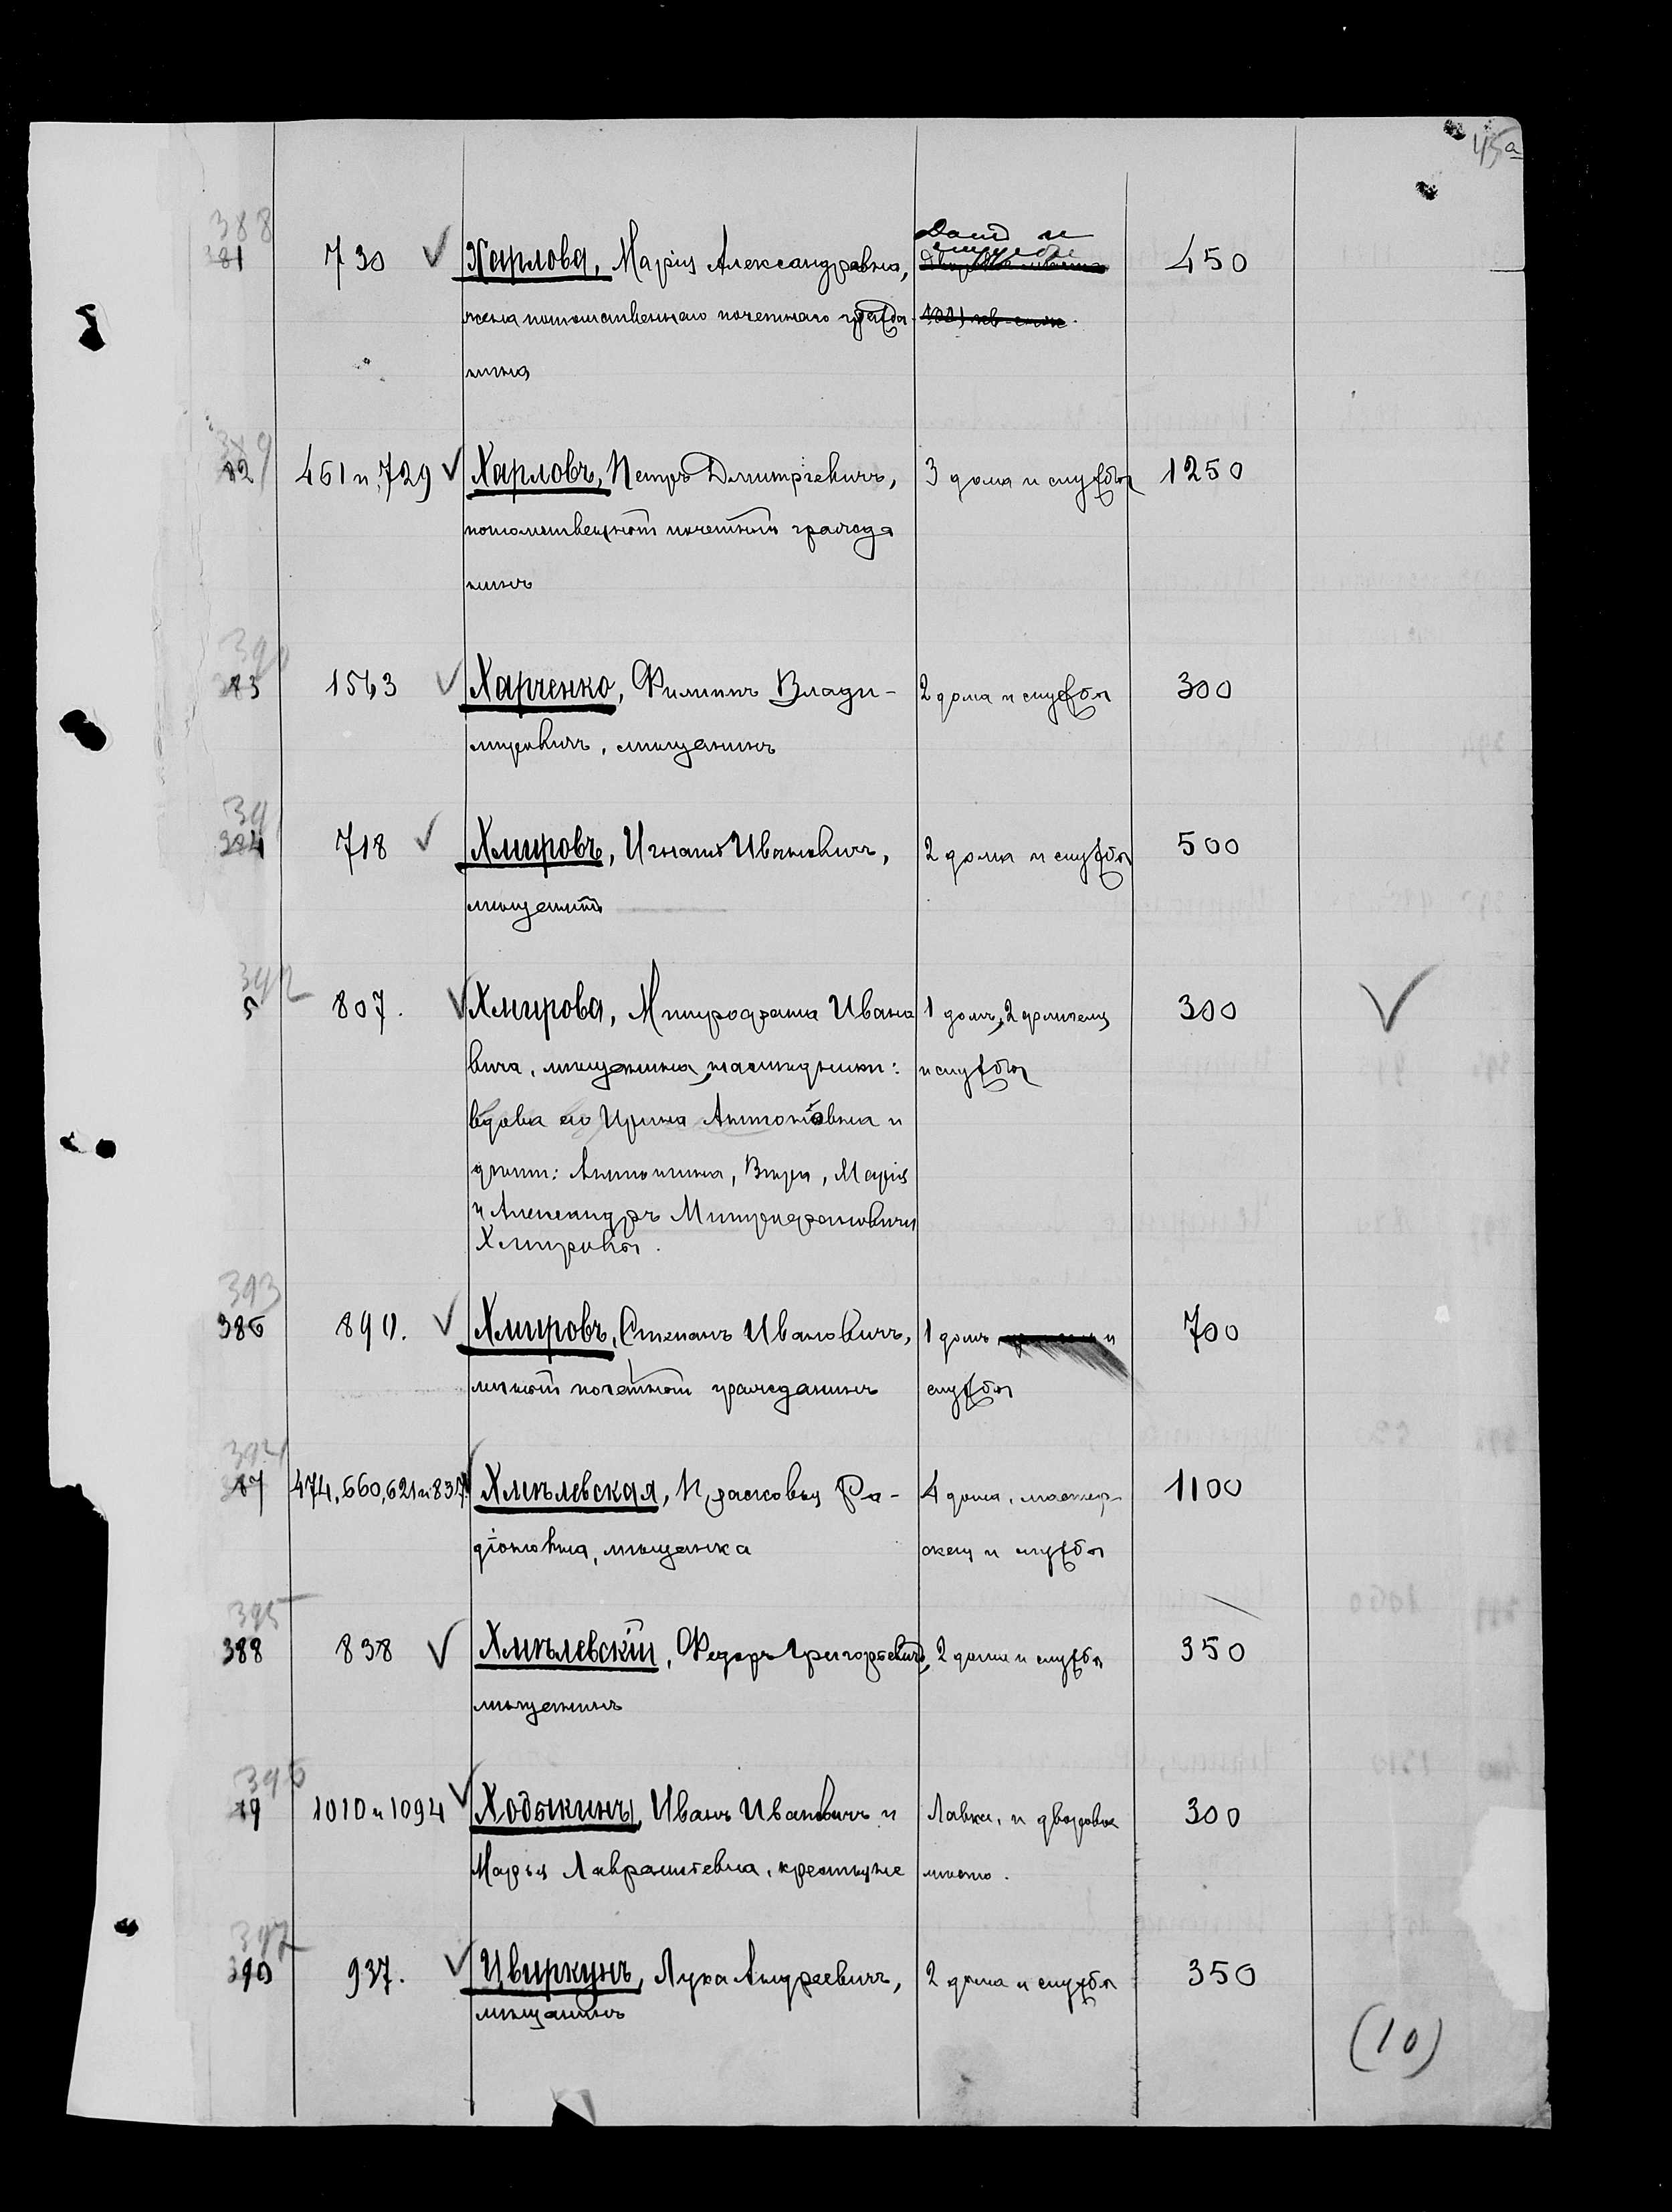 45а
388
381 730 Харлова, Марія Александровна, Домъ и службы 450
жена потомственнаго почетнаго гражда-
нина
389
82 461 и 729 Харловъ, Петръ Дмитріевичъ, 3 дома и службы 1250
потомственный почетный гражда
нинъ
390
383 1563 Харченко, Филиппъ Влади- 2 дома и службы 300
мировичъ, мѣщанинъ
391
384 718 Хмировъ, Игнатій Ивановичъ, 2 дома и службы 500
мѣщанинъ
392
5 807. Хмирова, Митрофана Ивано 1 домъ, 2 флигеля 300
вича, мѣщанина, наслѣдники: и службы
вдова его Ирина Антоновна и
дѣти: Антонина, Вѣра, Марія
и Александръ Митрофановичи
Хмировы.
393
386 890. Хмировъ, Степанъ Ивановичъ, 1 домъ и 700
личный почетный гражданинъ службы
394
387 474, 660, 621 и 837. Хмѣлевская, Прасковья Ра- 4 дома, мастер- 1100
діоновна, мѣщанка ская и службы
395
388 838 Хмѣлевскій, Федоръ Григорьевичъ, 2 дома и службы 350
мѣщанинъ
396
89 1010 и 1094 Ходыкины, Иванъ Ивановичъ и Лавка, и дворовое 300
Марья Лаврентьевна, крестьяне мѣсто.
397
390 937. Цвиркунъ, Лука Андреевичъ, 2 дома и службы 350
мѣщанинъ
(10)